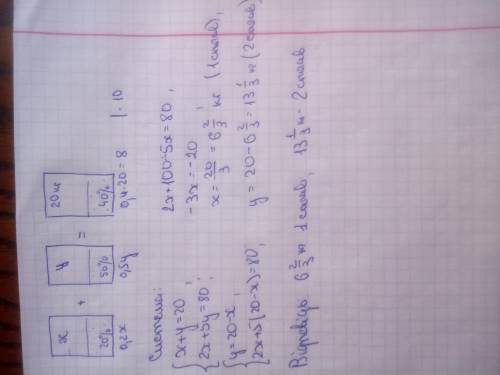 x + y = 20 кг
20% 50% 40%
0,2x 0,5y 0,4·20=8 |·10
Система:
{x+y=20,
2x+5y=80;
{y=20-x,
2x+5(20-x)=80,
2x+100-5x=80,
-3x=-20
x=20/3=6 2/3 кг (1 сплав),
y=20-6 2/3=13 1/3 кг (2 сплав)
Відповідь: 6 2/3 кг 1 сплав, 13 1/3 кг - 2 сплав